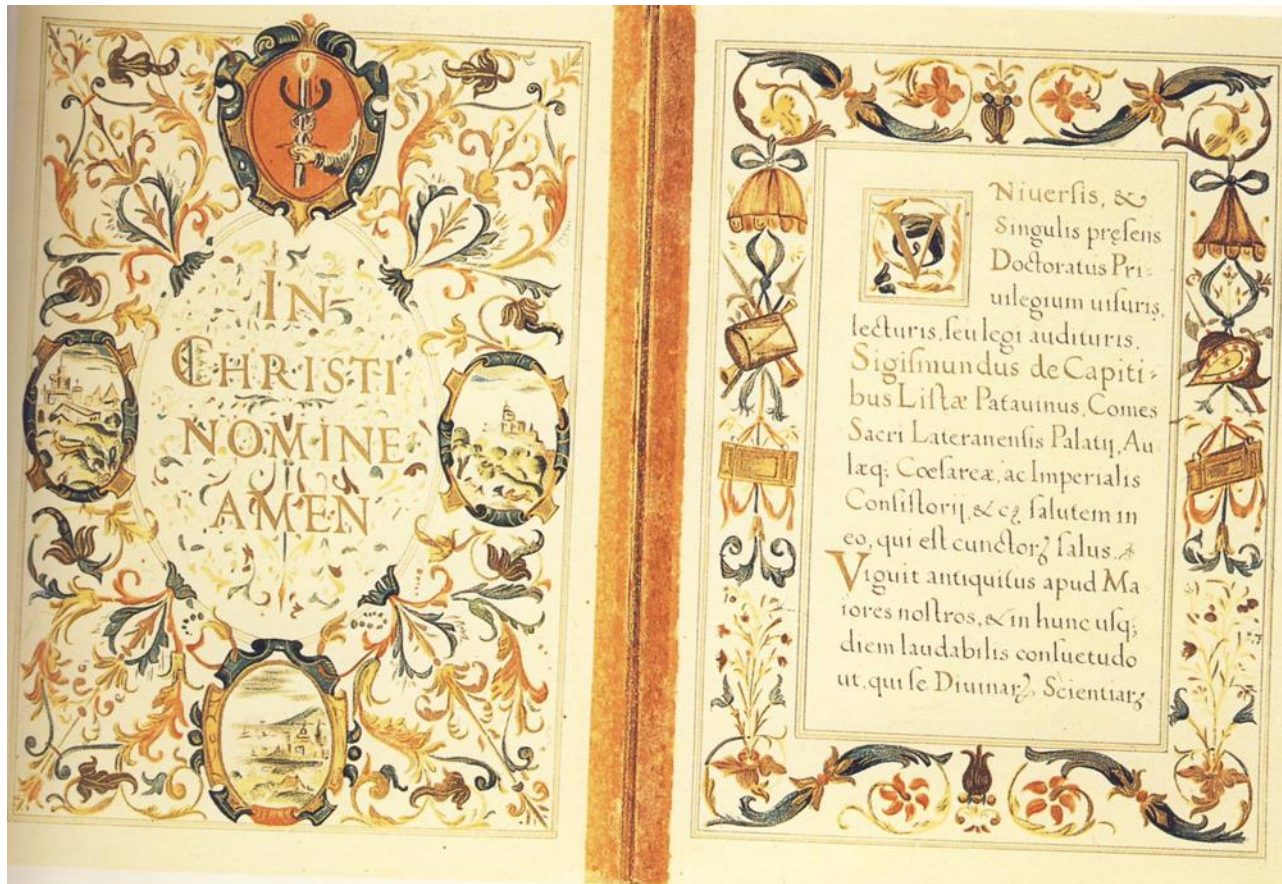 IN
CHRISTI
NOMINE
AMEN
VNiuerſis, &
Singulis pręſens
Doctoratus Pri-
uilegium uiſuris,
lecturis, ſeu legi audituris.
Sigiſmundus de Capiti-
bus Liſtæ Patauinus, Comes
Sacri Lateranenſis Palatij, Au-
læq; Cœſareæ, ac Imperialis
Conſiſtorij, & cꝫ ſalutem in
eo, qui eſt cunctorꝫ ſalus.
Viguit antiquitus apud Ma-
iores noſtros, & in hunc uſq;
diem laudabilis conſuetudo
ut, qui ſe Diuinarꝫ Scientiarꝫ